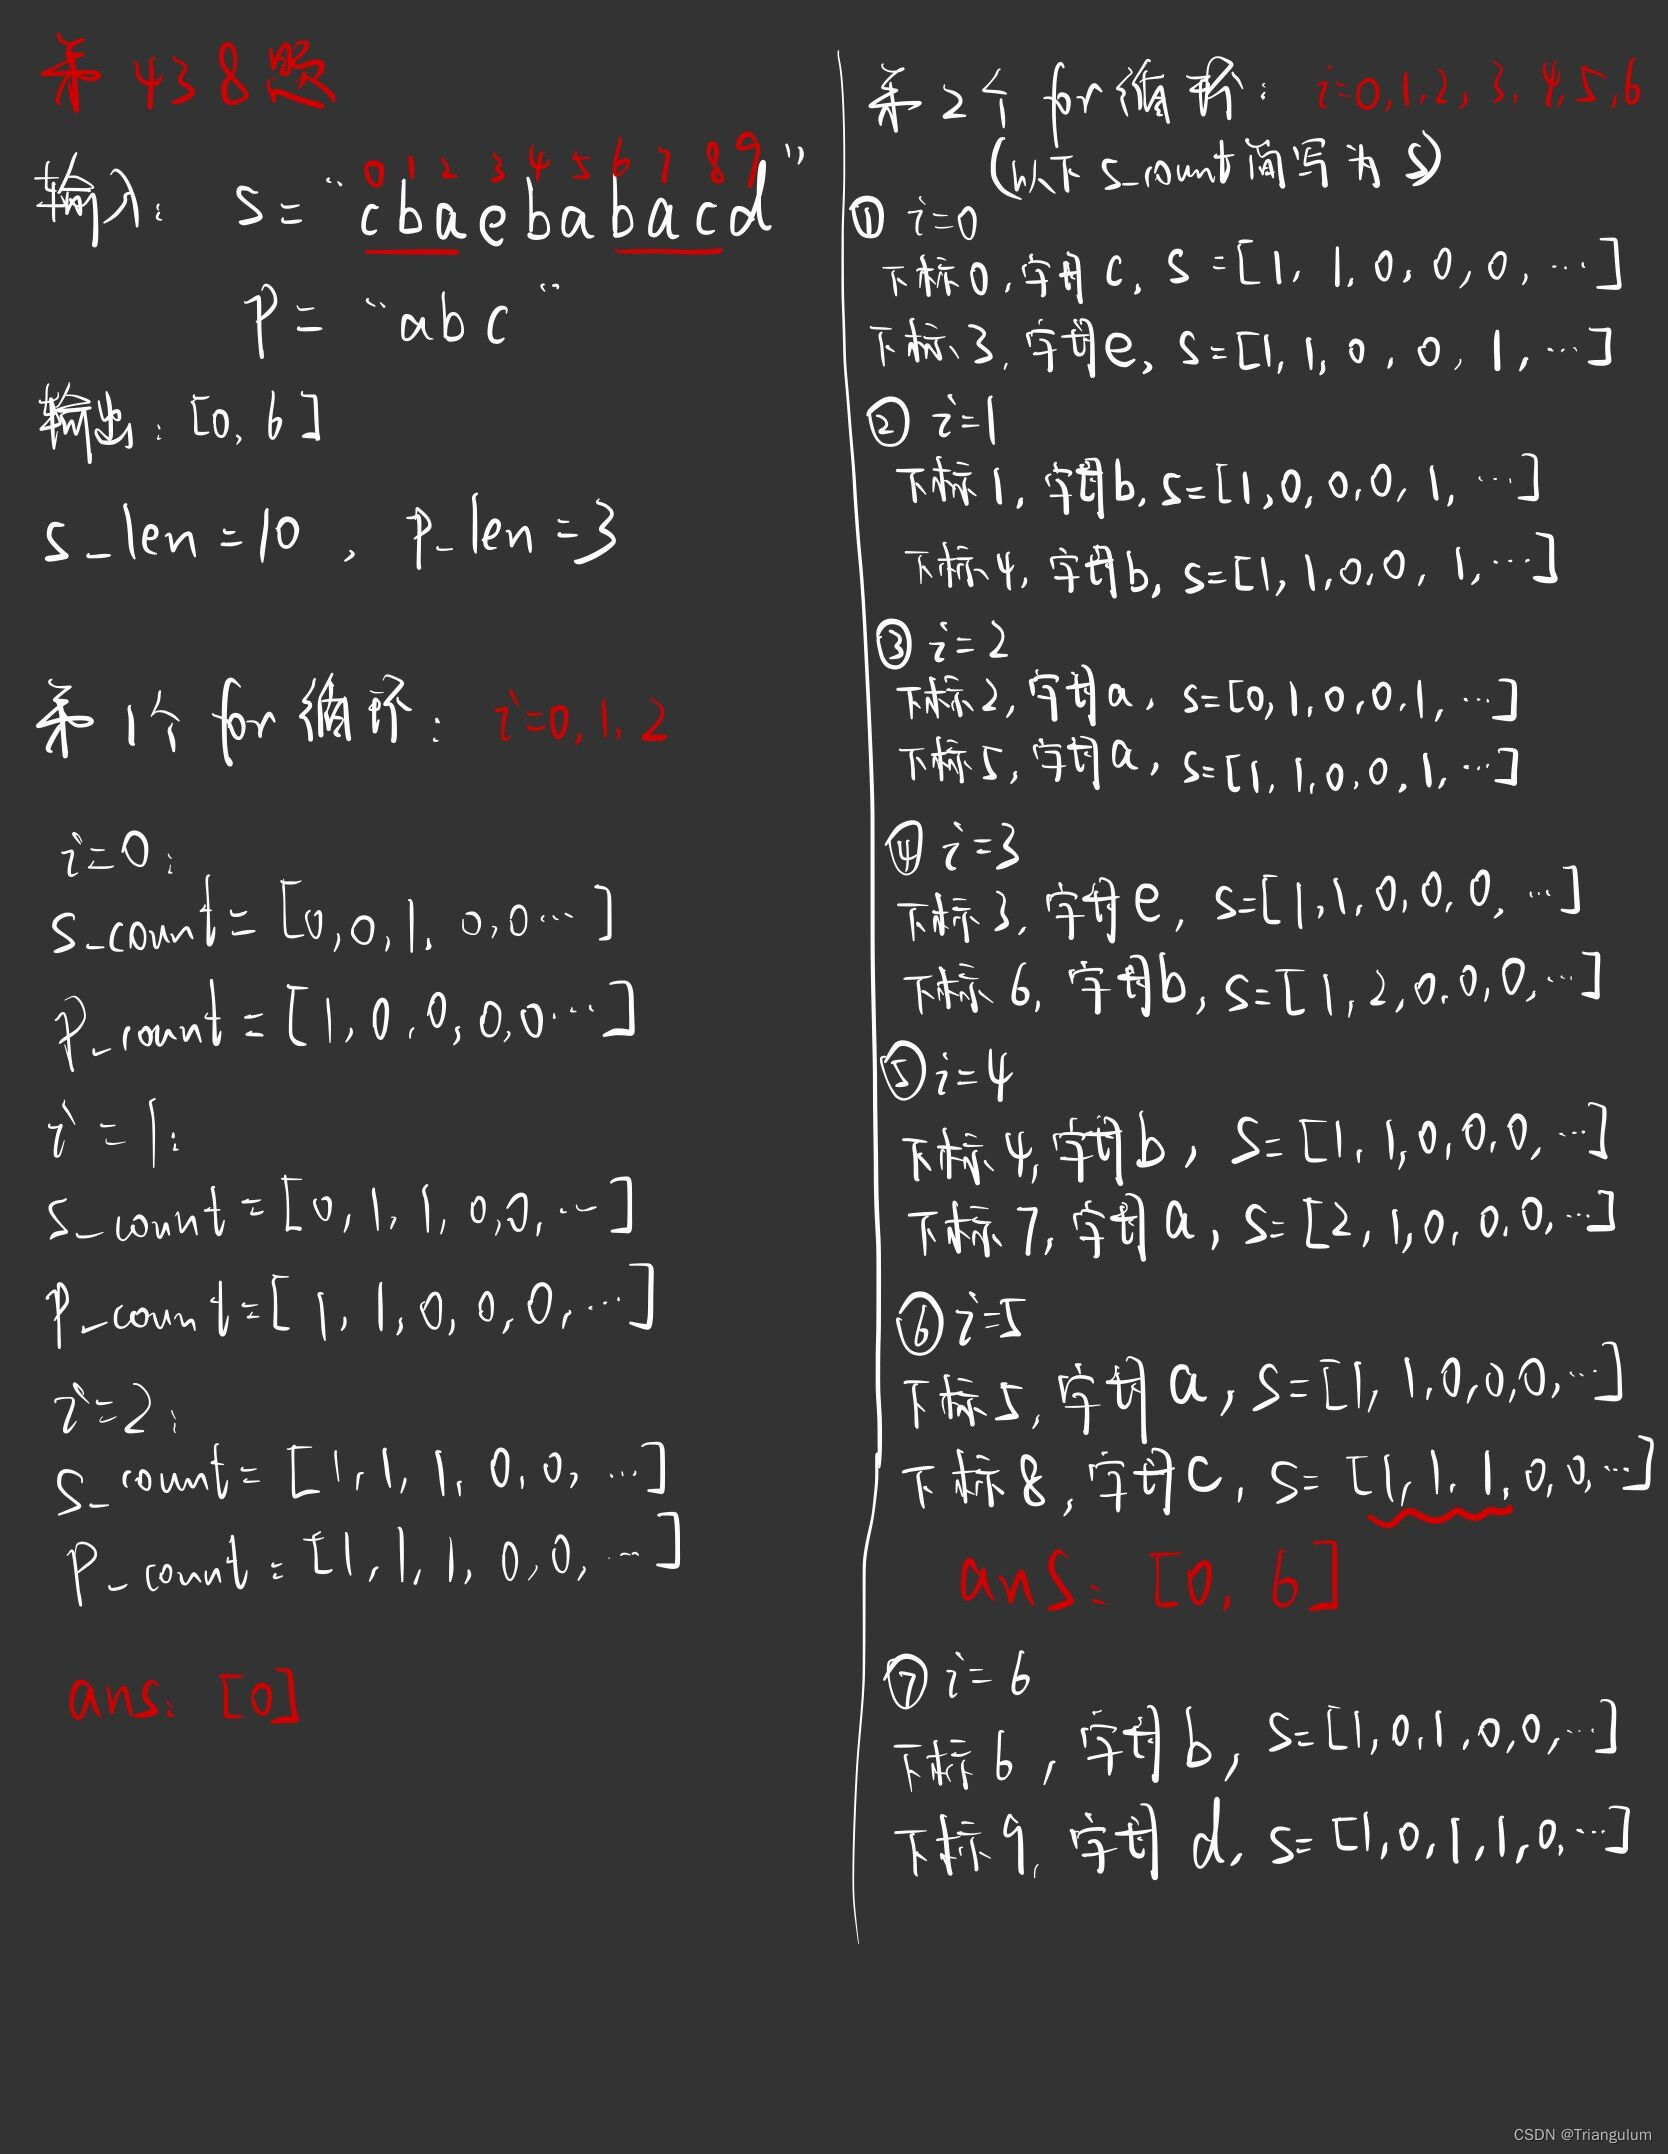 第438题
0 1 2 3 4 5 6 7 8 9
输入: s = "cbaebabacd"
p = "abc"
输出: [0, 6]
s_len = 10, p_len = 3
第1个for循环: i=0,1,2
i=0:
s_count = [0,0,1,0,0…]
p_count = [1,0,0,0,0…]
i=1:
s_count = [0,1,1,0,0,…]
p_count = [1,1,0,0,0,…]
i=2:
s_count = [1,1,1,0,0,…]
p_count = [1,1,1,0,0,…]
ans: [0]
第2个for循环: i=0,1,2,3,4,5,6
(以下s_count简写为s)
① i=0
下标0,字母c, s=[1,1,0,0,0,…]
下标3,字母e, s=[1,1,0,0,1,…]
② i=1
下标1,字母b, s=[1,0,0,0,1,…]
下标4,字母b, s=[1,1,0,0,1,…]
③ i=2
下标2,字母a, s=[0,1,0,0,1,…]
下标5,字母a, s=[1,1,0,0,1,…]
④ i=3
下标3,字母e, s=[1,1,0,0,0,…]
下标6,字母b, s=[1,2,0,0,0,…]
⑤ i=4
下标4,字母b, s=[1,1,0,0,0,…]
下标7,字母a, s=[2,1,0,0,0,…]
⑥ i=5
下标5,字母a, s=[1,1,0,0,0,…]
下标8,字母c, s=[1,1,1,0,0,…]
ans: [0, 6]
⑦ i=6
下标6,字母b, s=[1,0,1,0,0,…]
下标9,字母d, s=[1,0,1,1,0,…]
CSDN @Triangulum